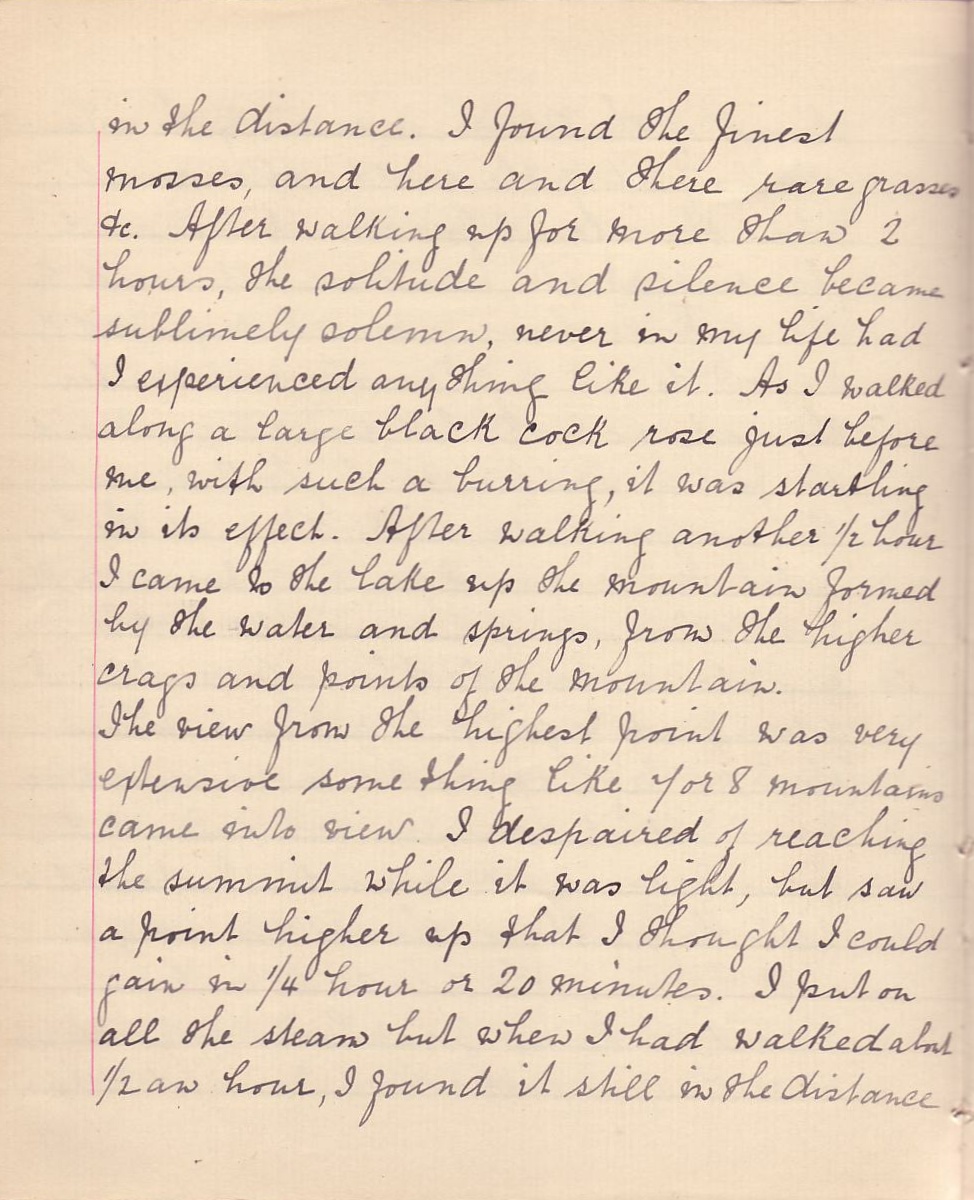 in the distance. I found the finest
mosses, and here and there rare grasses
&c. After walking up for more than 2
hours, the solitude and silence became
sublimely solemn, never in my life had
I experienced any thing like it. As I walked
along a large black cock rose just before
me, with such a burring, it was startling
in its effect. After walking another 1/2 hour
I came to the lake up the mountain formed
by the water and springs, from the higher
crags and points of the mountain.
The view from the highest point was very
extensive some thing like 7 or 8 mountains
came into view I despaired of reaching
the summit while it was light, but saw
a point higher up that I thought I could
gain in 1/4 hour or 20 minutes. I put on
all the steam but when I had walked about
1/2 an hour, I found it still in the distance